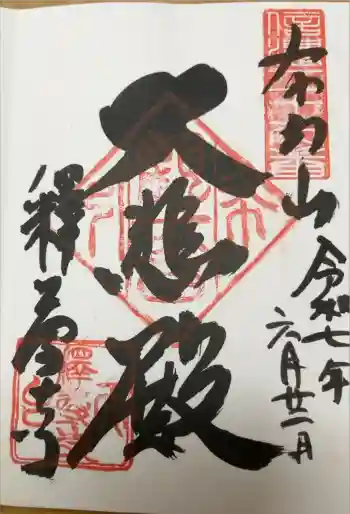 布引山
令和七年
六月廿一日
大悲殿
釋尊寺